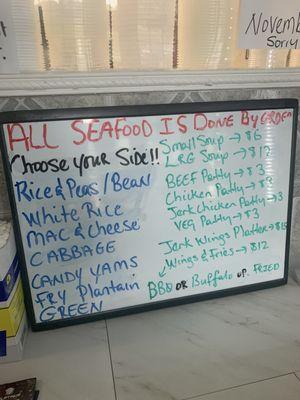 November
Sorry
ALL SEAFOOD IS DONE BY ORDER
Choose Your Side!!
Rice & Peas / Bean
White Rice
Mac & Cheese
CABBAGE
CANDY YAMS
FRY Plantain
GREEN
Small Soup → $6
LRG Soup → $12
BEEF Patty → $3
Chicken Patty →
Jerk Chicken Patty → $3
VEG Patty → $3
Jerk Wings Platter → $15
Wings & Fries → $12
BBQ OR Buffalo OR FRIED